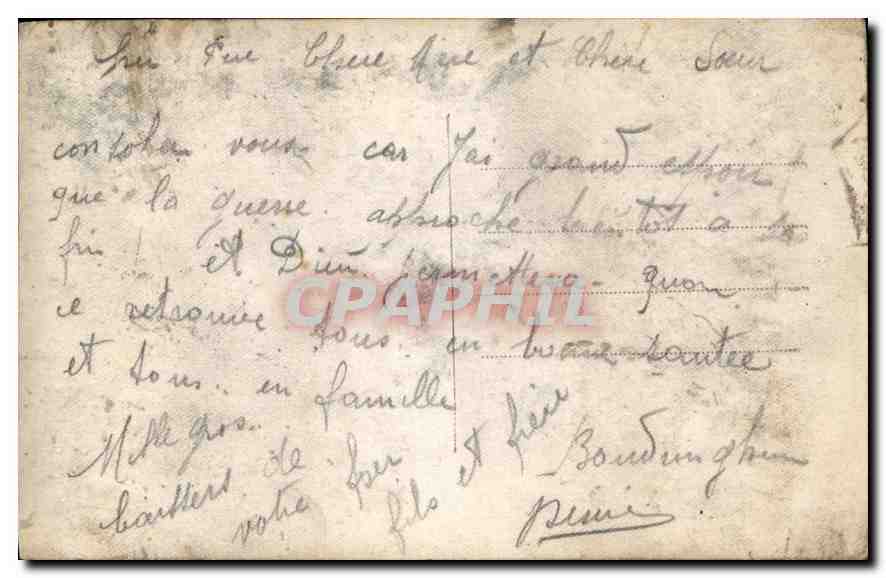 Père Chère Mère et Chère Soeur
consoler vous car J'ai grand espoir
que la guerre approche bientôt a sa
fin et Dieu permettera quon
ce retrouve tous en bonne santee
et tous en famille
Mille gros
baissers de
votre
fils et frère
CPAPHIL